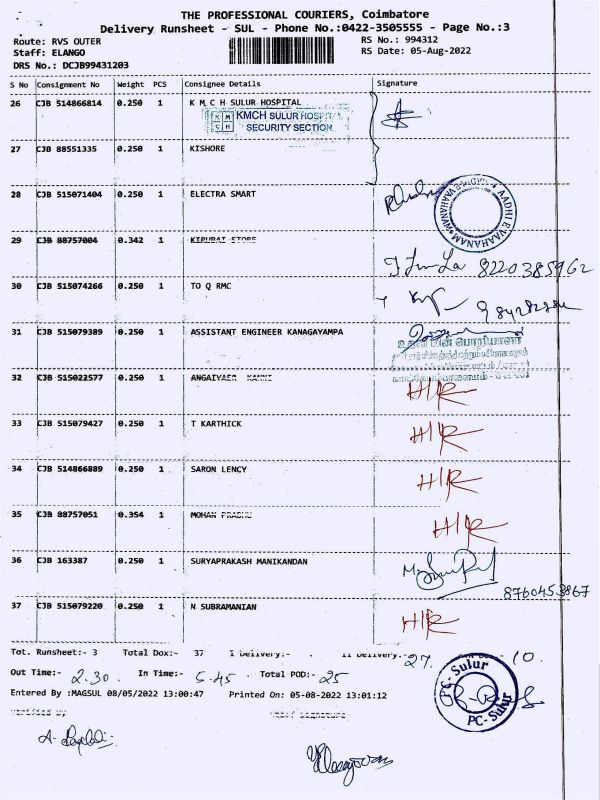 THE PROFESSIONAL COURIERS, Coimbatore
Delivery Runsheet - SUL - Phone No.:0422-3505555 - Page No.:3
Route: RVS OUTER RS No.: 994312
Staff: ELANGO RS Date: 05-Aug-2022
DRS No.: DCJB99431203
S No Consignment No Weight PCS Consignee Details Signature
26 CJB 514866814 0.250 1 K M C H SULUR HOSPITAL
KMCH SULUR HOSPITAL
SECURITY SECTION
27 CJB 88551335 0.250 1 KISHORE
28 CJB 515071404 0.250 1 ELECTRA SMART
AADHIE VAAHANAM
29 CJB 88757004 0.342 1 KIRUBAI STORE
8220385962
30 CJB 515074266 0.250 1 TO Q RMC
31 CJB 515079389 0.250 1 ASSISTANT ENGINEER KANAGAYAMPA
உதவி மின் பொறியாளர்
32 CJB 515022577 0.250 1 ANGAIYAER KANNI H/R
33 CJB 515079427 0.250 1 T KARTHICK H/R
34 CJB 514866889 0.250 1 SARON LENCY H/R
35 CJB 88757051 0.354 1 MOHAN PRABHU H/R
36 CJB 163387 0.250 1 SURYAPRAKASH MANIKANDAN
8760453867
37 CJB 515079220 0.250 1 N SUBRAMANIAN H/R
Tot. Runsheet:- 3 Total Dox:- 37 I Delivery:- II Delivery:- 27. 10.
Out Time:- 2.30. In Time:- 5.45. Total POD:- 25
PC-Sulur
PC-Sulur
Entered By :MAGSUL 08/05/2022 13:00:47 Printed On: 05-08-2022 13:01:12
Verified By Staff Signature